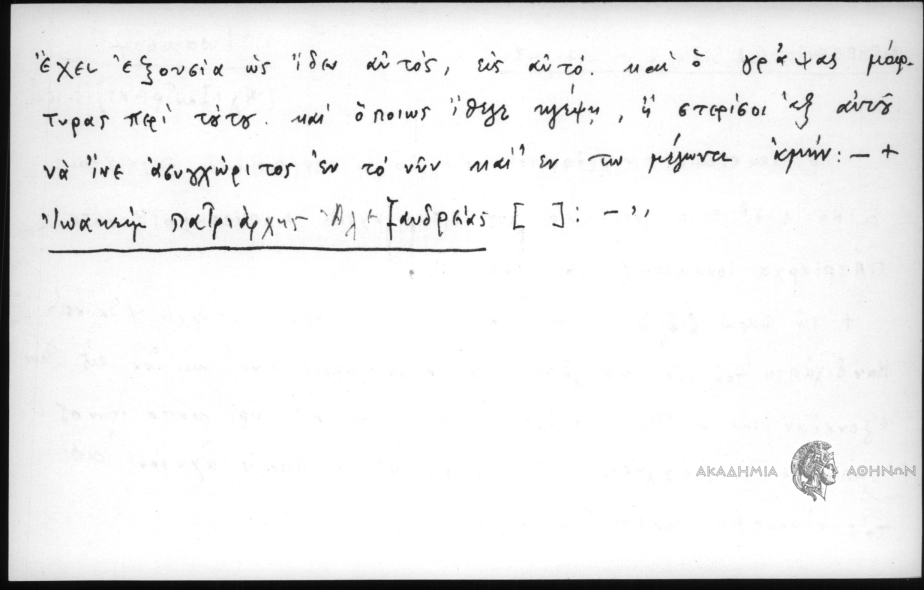 ἔχει ἐξουσία ὡς ἴδεν αὐτὸς, εἰς αὐτό. καὶ ὁ γράψας μάρ-
τυρας περί τȣ́τȣ. καὶ ὅποιως ἤθελε κλέψῃ, ἤ στερίσοι ἐξ αὐτȣ͂
νὰ ἶνε ἀσυγχώριτος ἐν τό νῦν καὶ ἐν τω μέλωντι ἀμήν: — +
Ἰωακεὶμ πατριάρχης Ἀλεξανδρείας [ ]: — ,,
ΑΚΑΔΗΜΙΑ ΑΘΗΝΩΝ